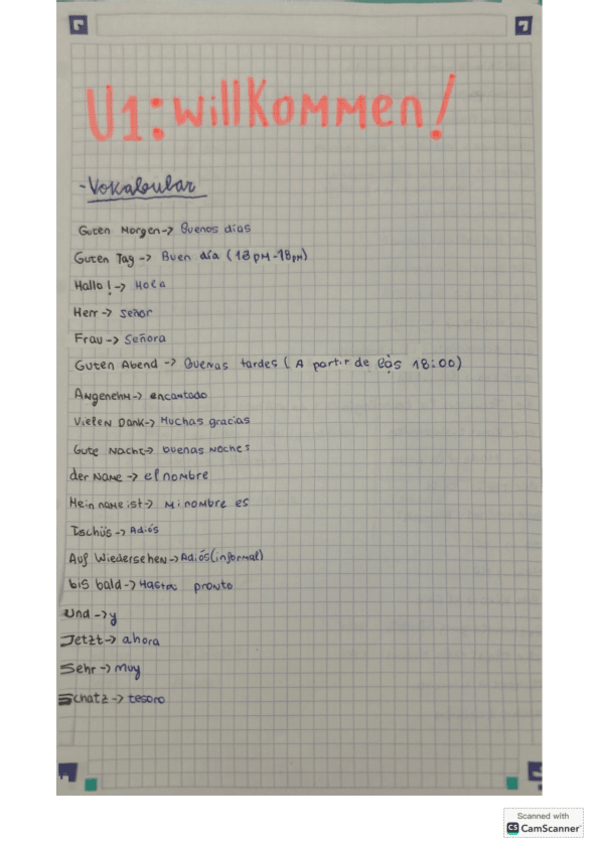 U1: Willkommen!
- Vokabular
Guten Morgen -> Buenos días
Guten Tag -> Buen día (12 PM - 18 PM)
Hallo! -> Hola
Herr -> señor
Frau -> Señora
Guten Abend -> Buenas tardes (A partir de las 18:00)
Angenehm -> encantado
Vielen Dank -> Muchas gracias
Gute Nacht -> buenas noches
der Name -> el nombre
Mein name ist -> Mi nombre es
Tschüs -> Adiós
Auf Wiedersehen -> Adiós (informal)
bis bald -> Hasta pronto
Und -> y
Jetzt -> ahora
Sehr -> muy
Schatz -> tesoro
Scanned with
CS CamScanner